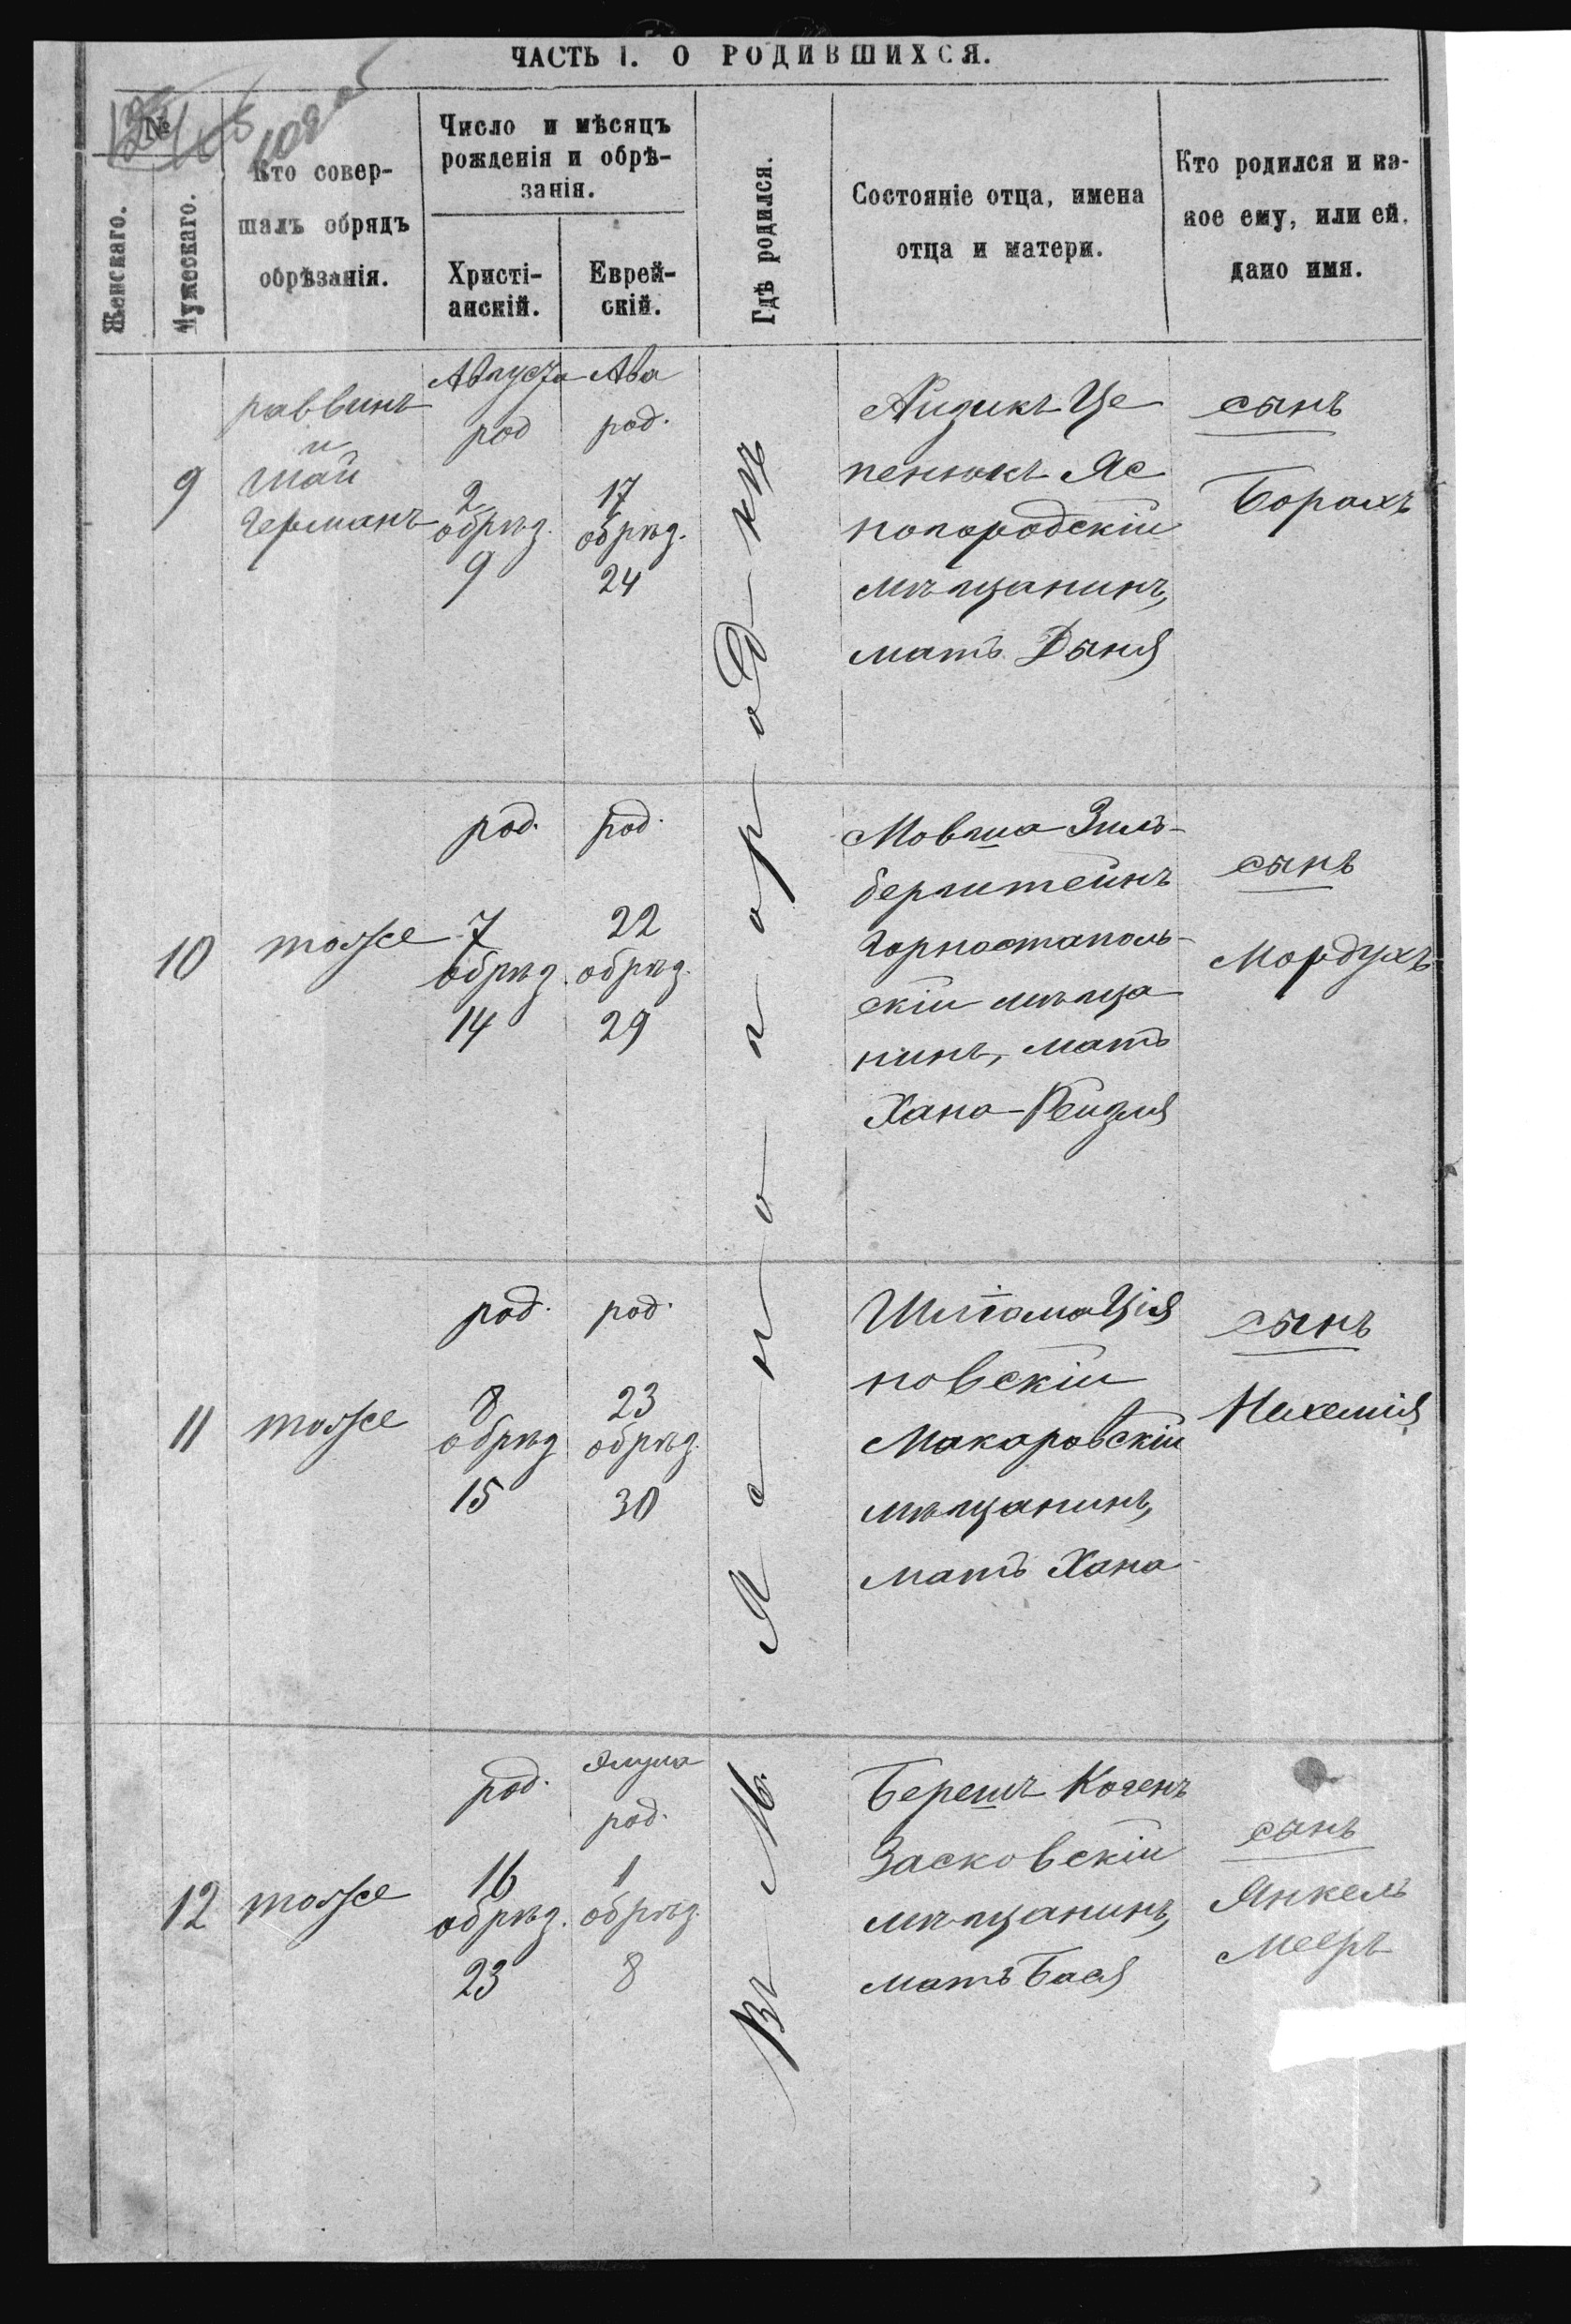 ЧАСТЬ I. О РОДИВШИХСЯ.
№
Женскаго.
Мужескаго.
Кто совер-
шалъ обрядъ
обрѣзанія.
Число и мѣсяцъ
рожденія и обрѣ-
занія.
Христі-
анскій.
Еврей-
скій.
Гдѣ родился.
Состояніе отца, имена
отца и матери.
Кто родился и ка-
кое ему, или ей.
дано имя.
Въ М. Ясногородкѣ
9
раввинъ
и
Шай
Германъ
Августа
род
2
обрѣз.
9
Ава
род.
17
обрѣз.
24
Айзикъ Це
пенюкъ Яс
ногородскій
мѣщанинъ,
мать Дыня
сынъ
Борахъ
10
тоже
род.
7
обрѣз.
14
род.
22
обрѣз.
29
Мовша Зиль-
берштейнъ
Горностаполь-
скій мѣща
нинъ, мать
Хана-Рейзля
сынъ
Мордухъ
11
тоже
род.
8
обрѣз
15
род.
23
обрѣз.
30
новскій
Макаровскій
мѣщанинъ,
мать Хана
сынъ
Нехемія
12
тоже
род.
16
обрѣз.
23
Элула
род.
1
обрѣз.
8
Берешъ Когенъ
Засковскій
мѣщанинъ,
мать Бася
сынъ
Янкель
Мееръ